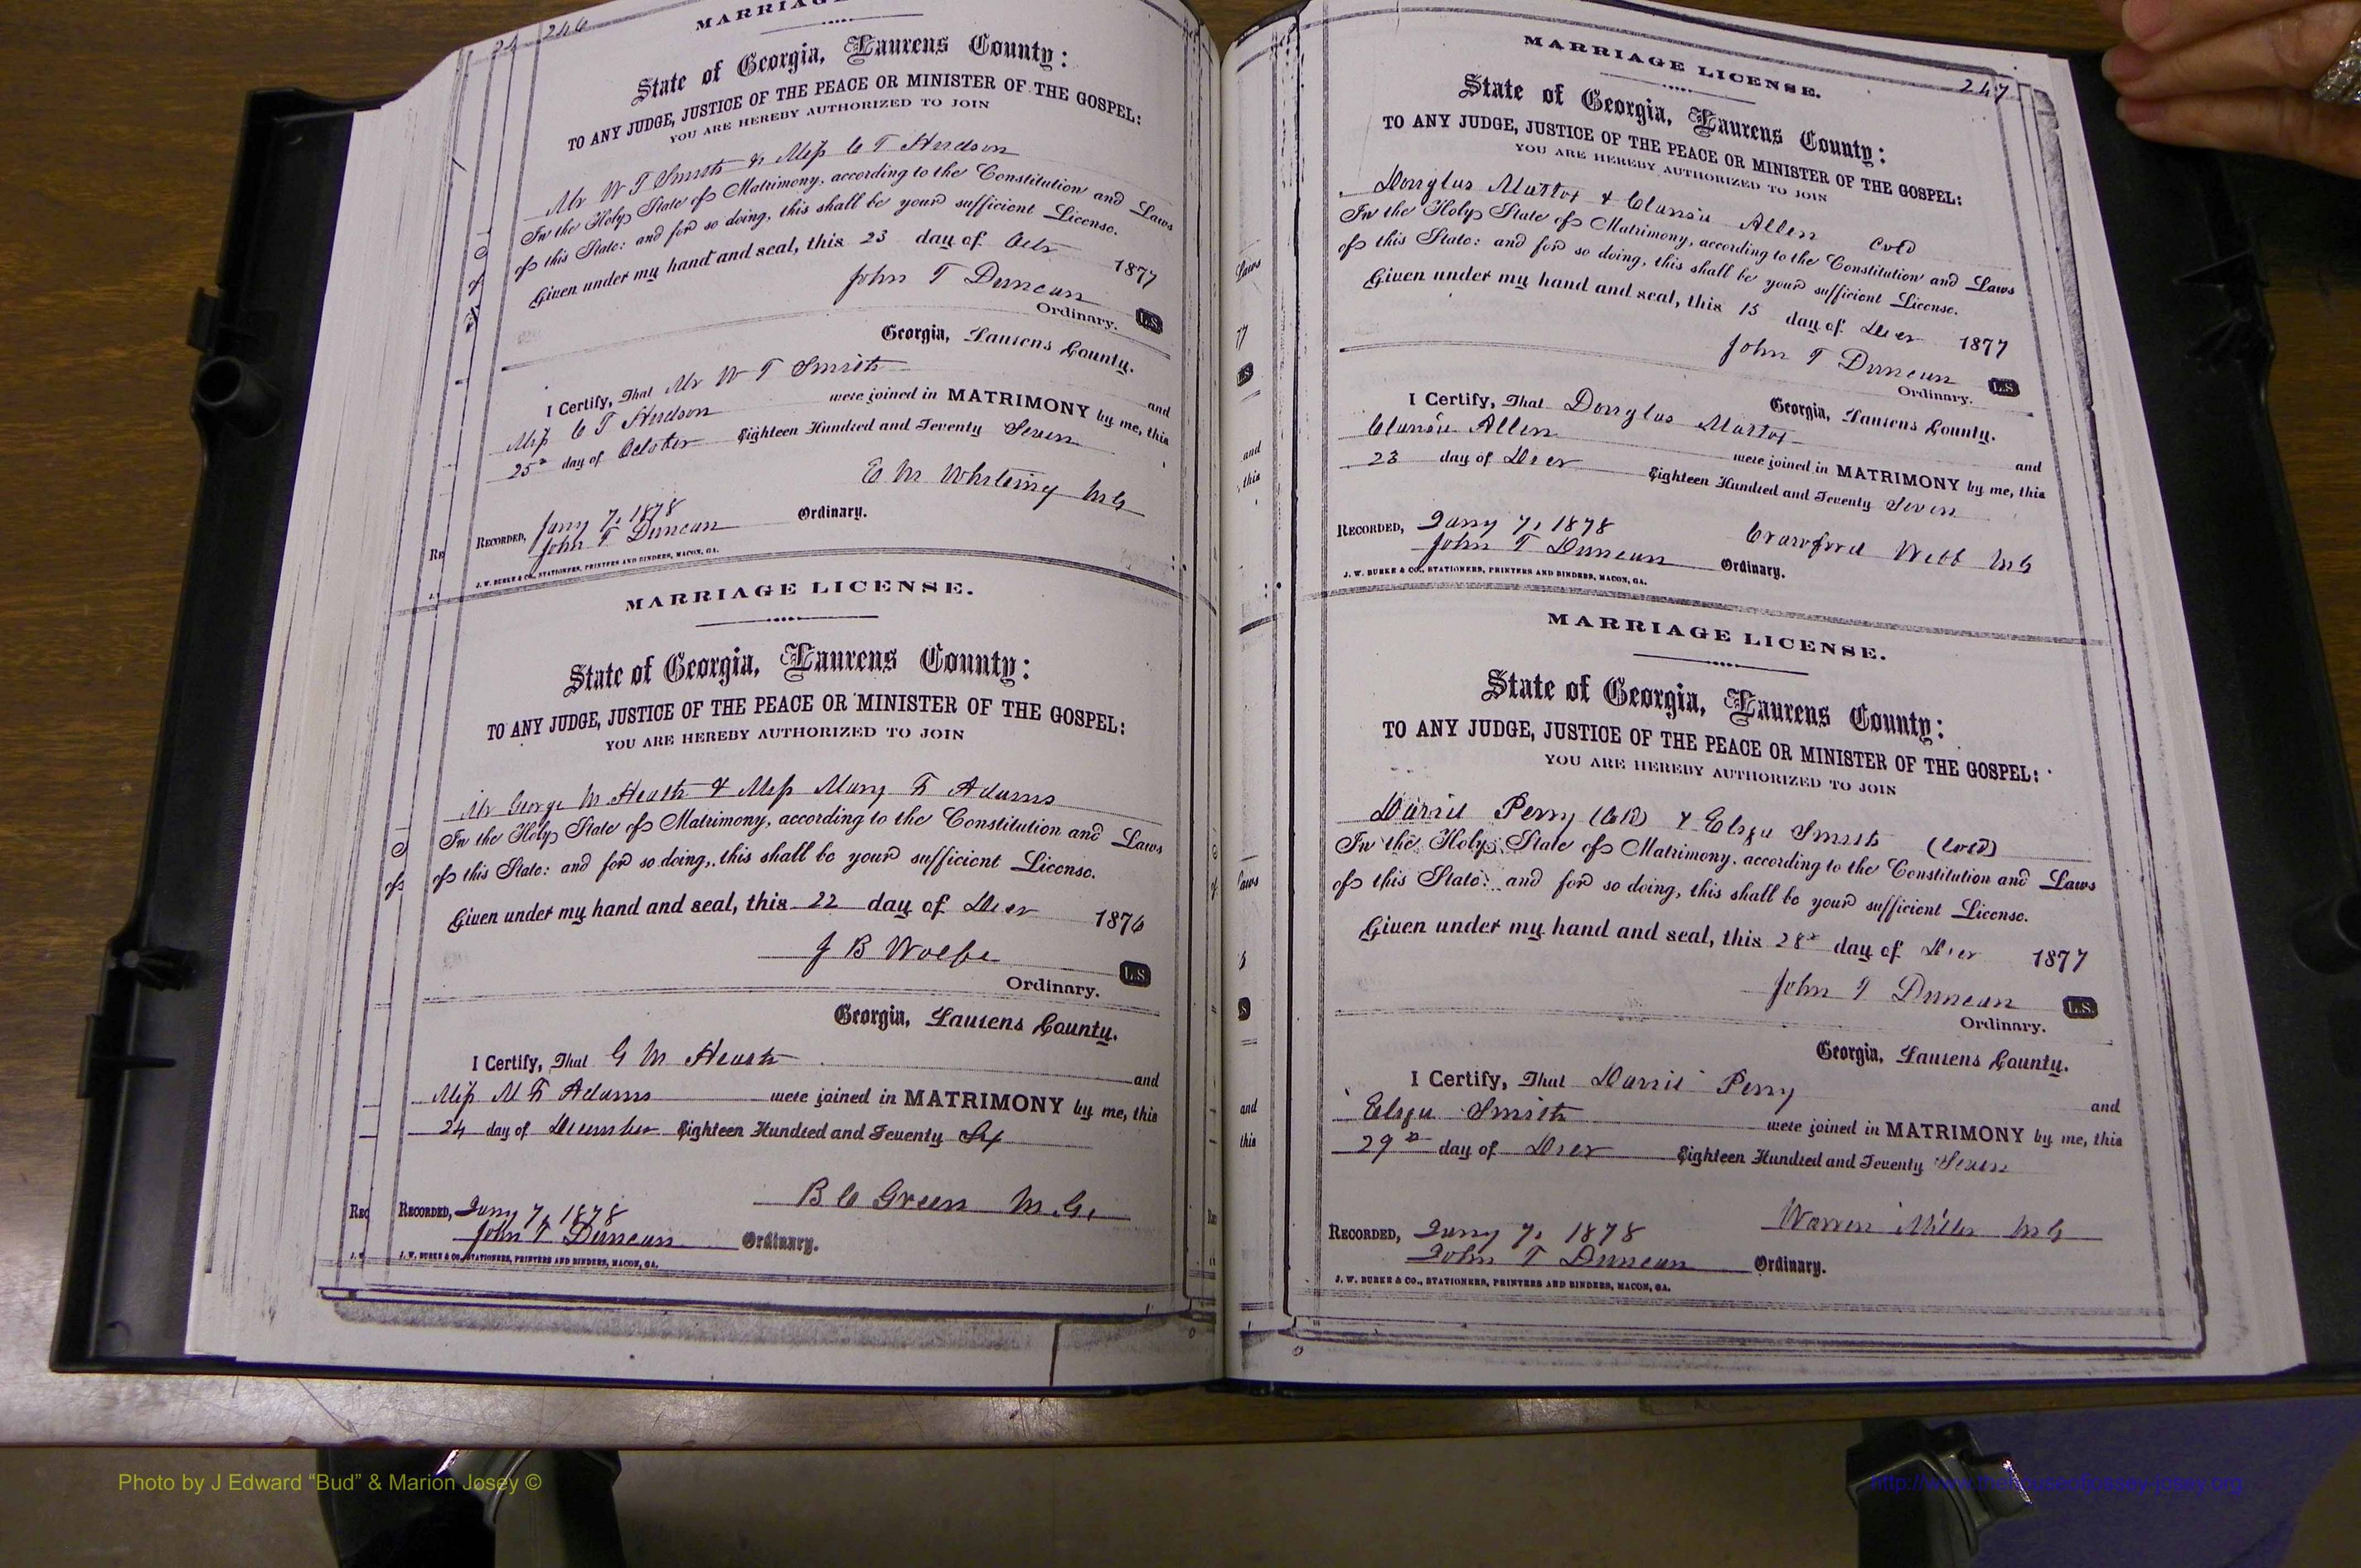 246
MARRIAG
State of Georgia, Laurens County:
TO ANY JUDGE, JUSTICE OF THE PEACE OR MINISTER OF THE GOSPEL:
YOU ARE HEREBY AUTHORIZED TO JOIN
Mr W T Smith & Miss C T Hudson
In the Holy State of Matrimony, according to the Constitution and Laws
of this State: and for so doing, this shall be your sufficient License.
Given under my hand and seal, this 23 day of Octr 1877
John T Duncan
Ordinary. L.S.
Georgia, Laurens County.
I Certify, That Mr W T Smith and
Miss C T Hudson were joined in MATRIMONY by me, this
25th day of October Eighteen Hundred and Seventy Seven
E M Whiting MG
RECORDED, Jany 7, 1878
John T Duncan Ordinary.
J. W. BURKE & CO., STATIONERS, PRINTERS AND BINDERS, MACON, GA.
MARRIAGE LICENSE.
State of Georgia, Laurens County:
TO ANY JUDGE, JUSTICE OF THE PEACE OR MINISTER OF THE GOSPEL:
YOU ARE HEREBY AUTHORIZED TO JOIN
Mr George M Heath & Miss Mary F Adams
In the Holy State of Matrimony, according to the Constitution and Laws
of this State: and for so doing, this shall be your sufficient License.
Given under my hand and seal, this 22 day of Decr 1876
J B Wolfe
L.S.
Ordinary.
Georgia, Laurens County.
I Certify, That G M Heath and
Miss M F Adams were joined in MATRIMONY by me, this
24 day of December Eighteen Hundred and Seventy Six
B C Green M.G.
RECORDED, Jany 7, 1878
John T Duncan Ordinary.
J. W. BURKE & CO., STATIONERS, PRINTERS AND BINDERS, MACON, GA.
247
MARRIAGE LICENSE.
State of Georgia, Laurens County:
TO ANY JUDGE, JUSTICE OF THE PEACE OR MINISTER OF THE GOSPEL:
YOU ARE HEREBY AUTHORIZED TO JOIN
Douglas Mattox & Allen Cold
In the Holy State of Matrimony, according to the Constitution and Laws
of this State: and for so doing, this shall be your sufficient License.
Given under my hand and seal, this 15 day of Decr 1877
John T Duncan
Ordinary. L.S.
Georgia, Laurens County.
I Certify, That Douglas Mattox and
Allen were joined in MATRIMONY by me, this
23 day of Decr Eighteen Hundred and Seventy Seven
Crawford Webb MG
RECORDED, Jany 7, 1878
John T Duncan Ordinary.
J. W. BURKE & CO., STATIONERS, PRINTERS AND BINDERS, MACON, GA.
MARRIAGE LICENSE.
State of Georgia, Laurens County:
TO ANY JUDGE, JUSTICE OF THE PEACE OR MINISTER OF THE GOSPEL:
YOU ARE HEREBY AUTHORIZED TO JOIN
Perry (Cld) & Smith (Cold)
In the Holy State of Matrimony, according to the Constitution and Laws
of this State: and for so doing, this shall be your sufficient License.
Given under my hand and seal, this 28th day of Decr 1877
John T Duncan
L.S.
Ordinary.
Georgia, Laurens County.
I Certify, That Perry and
Smith were joined in MATRIMONY by me, this
29th day of Decr Eighteen Hundred and Seventy Seven
Warren Miller MG
RECORDED, Jany 7, 1878
John T Duncan Ordinary.
J. W. BURKE & CO., STATIONERS, PRINTERS AND BINDERS, MACON, GA.
Photo by J Edward “Bud” & Marion Josey ©
http://www.thehouseofjossey-josey.org